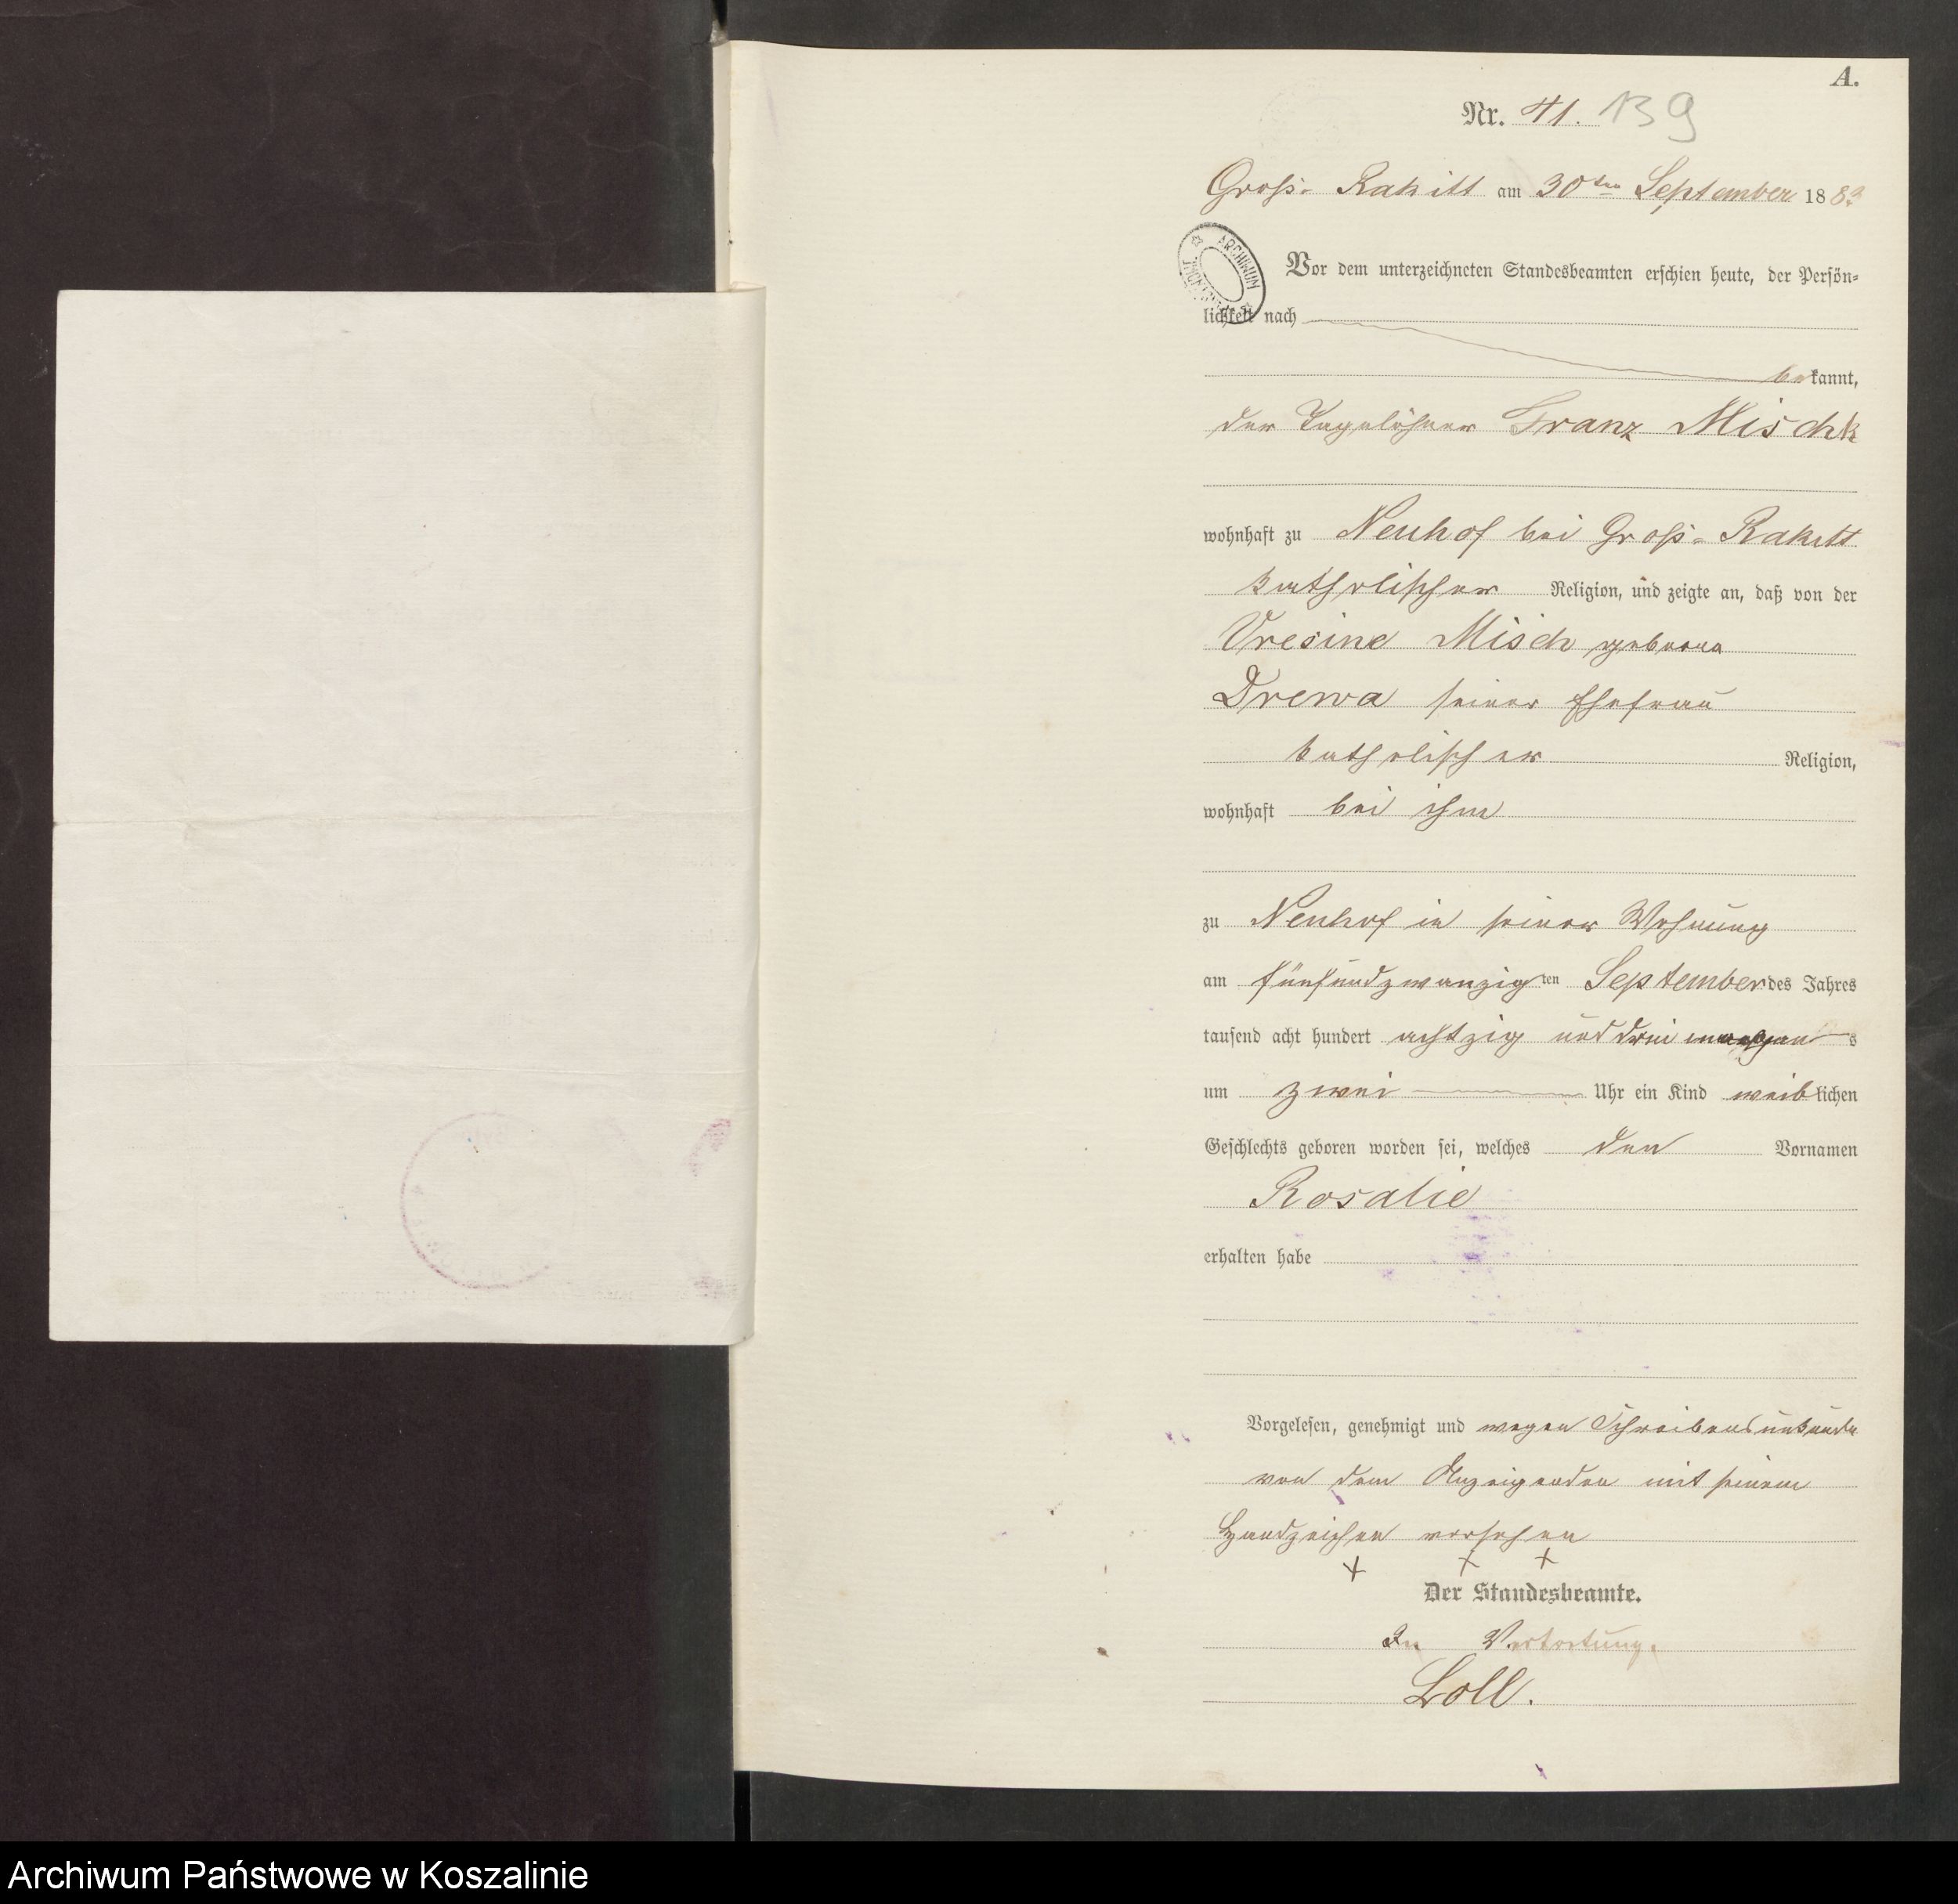 A.
Nr. 41. 139
Groß- Rakitt am 30ten September 1883
ARCHIWUM
Vor dem unterzeichneten Standesbeamten erschien heute, der Persön-
lichkeit nach
bekannt,
der Tagelöhner Franz Mischk
wohnhaft zu Neuhof bei Groß- Rakitt
katholischer Religion, und zeigte an, daß von der
Uresine Misch geborne
Drewa seiner Ehefrau
katholischer Religion,
wohnhaft bei ihm
zu Neuhof in seiner Wohnung
am fünfundzwanzigten September des Jahres
tausend acht hundert achtzig und drei morgens
um zwei Uhr ein Kind weiblichen
Geschlechts geboren worden sei, welches den Vornamen
Rosalie
erhalten habe
Vorgelesen, genehmigt und wegen Schreibensunkunde
von dem Anzeigenden mit seinem
Handzeichen versehen
+ + +
Der Standesbeamte.
In Vertretung.
Loll.
Archiwum Państwowe w Koszalinie